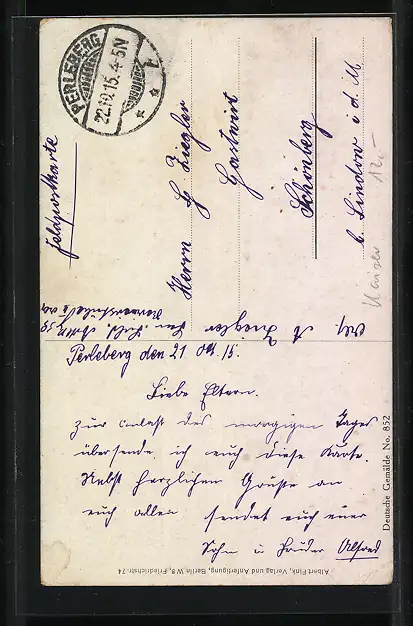 PERLEBERG
22.10.15. 4-5N
Feldpostkarte
Herrn G Ziegler
Gastwirt
Schönberg
b. Lindow i d. M
Perleberg den 21 Okt. 15.
Liebe Eltern.
Zur anlaß des morgigen Tages
übersende ich euch diese Karte.
Nebst herzlichen Grüße an
euch allen sendet euch euer
Sohn u Bruder Alfred
Deutsche Gemälde No. 852
Albert Fink, Verlag und Anfertigung, Berlin W8, Friedrichstr. 74